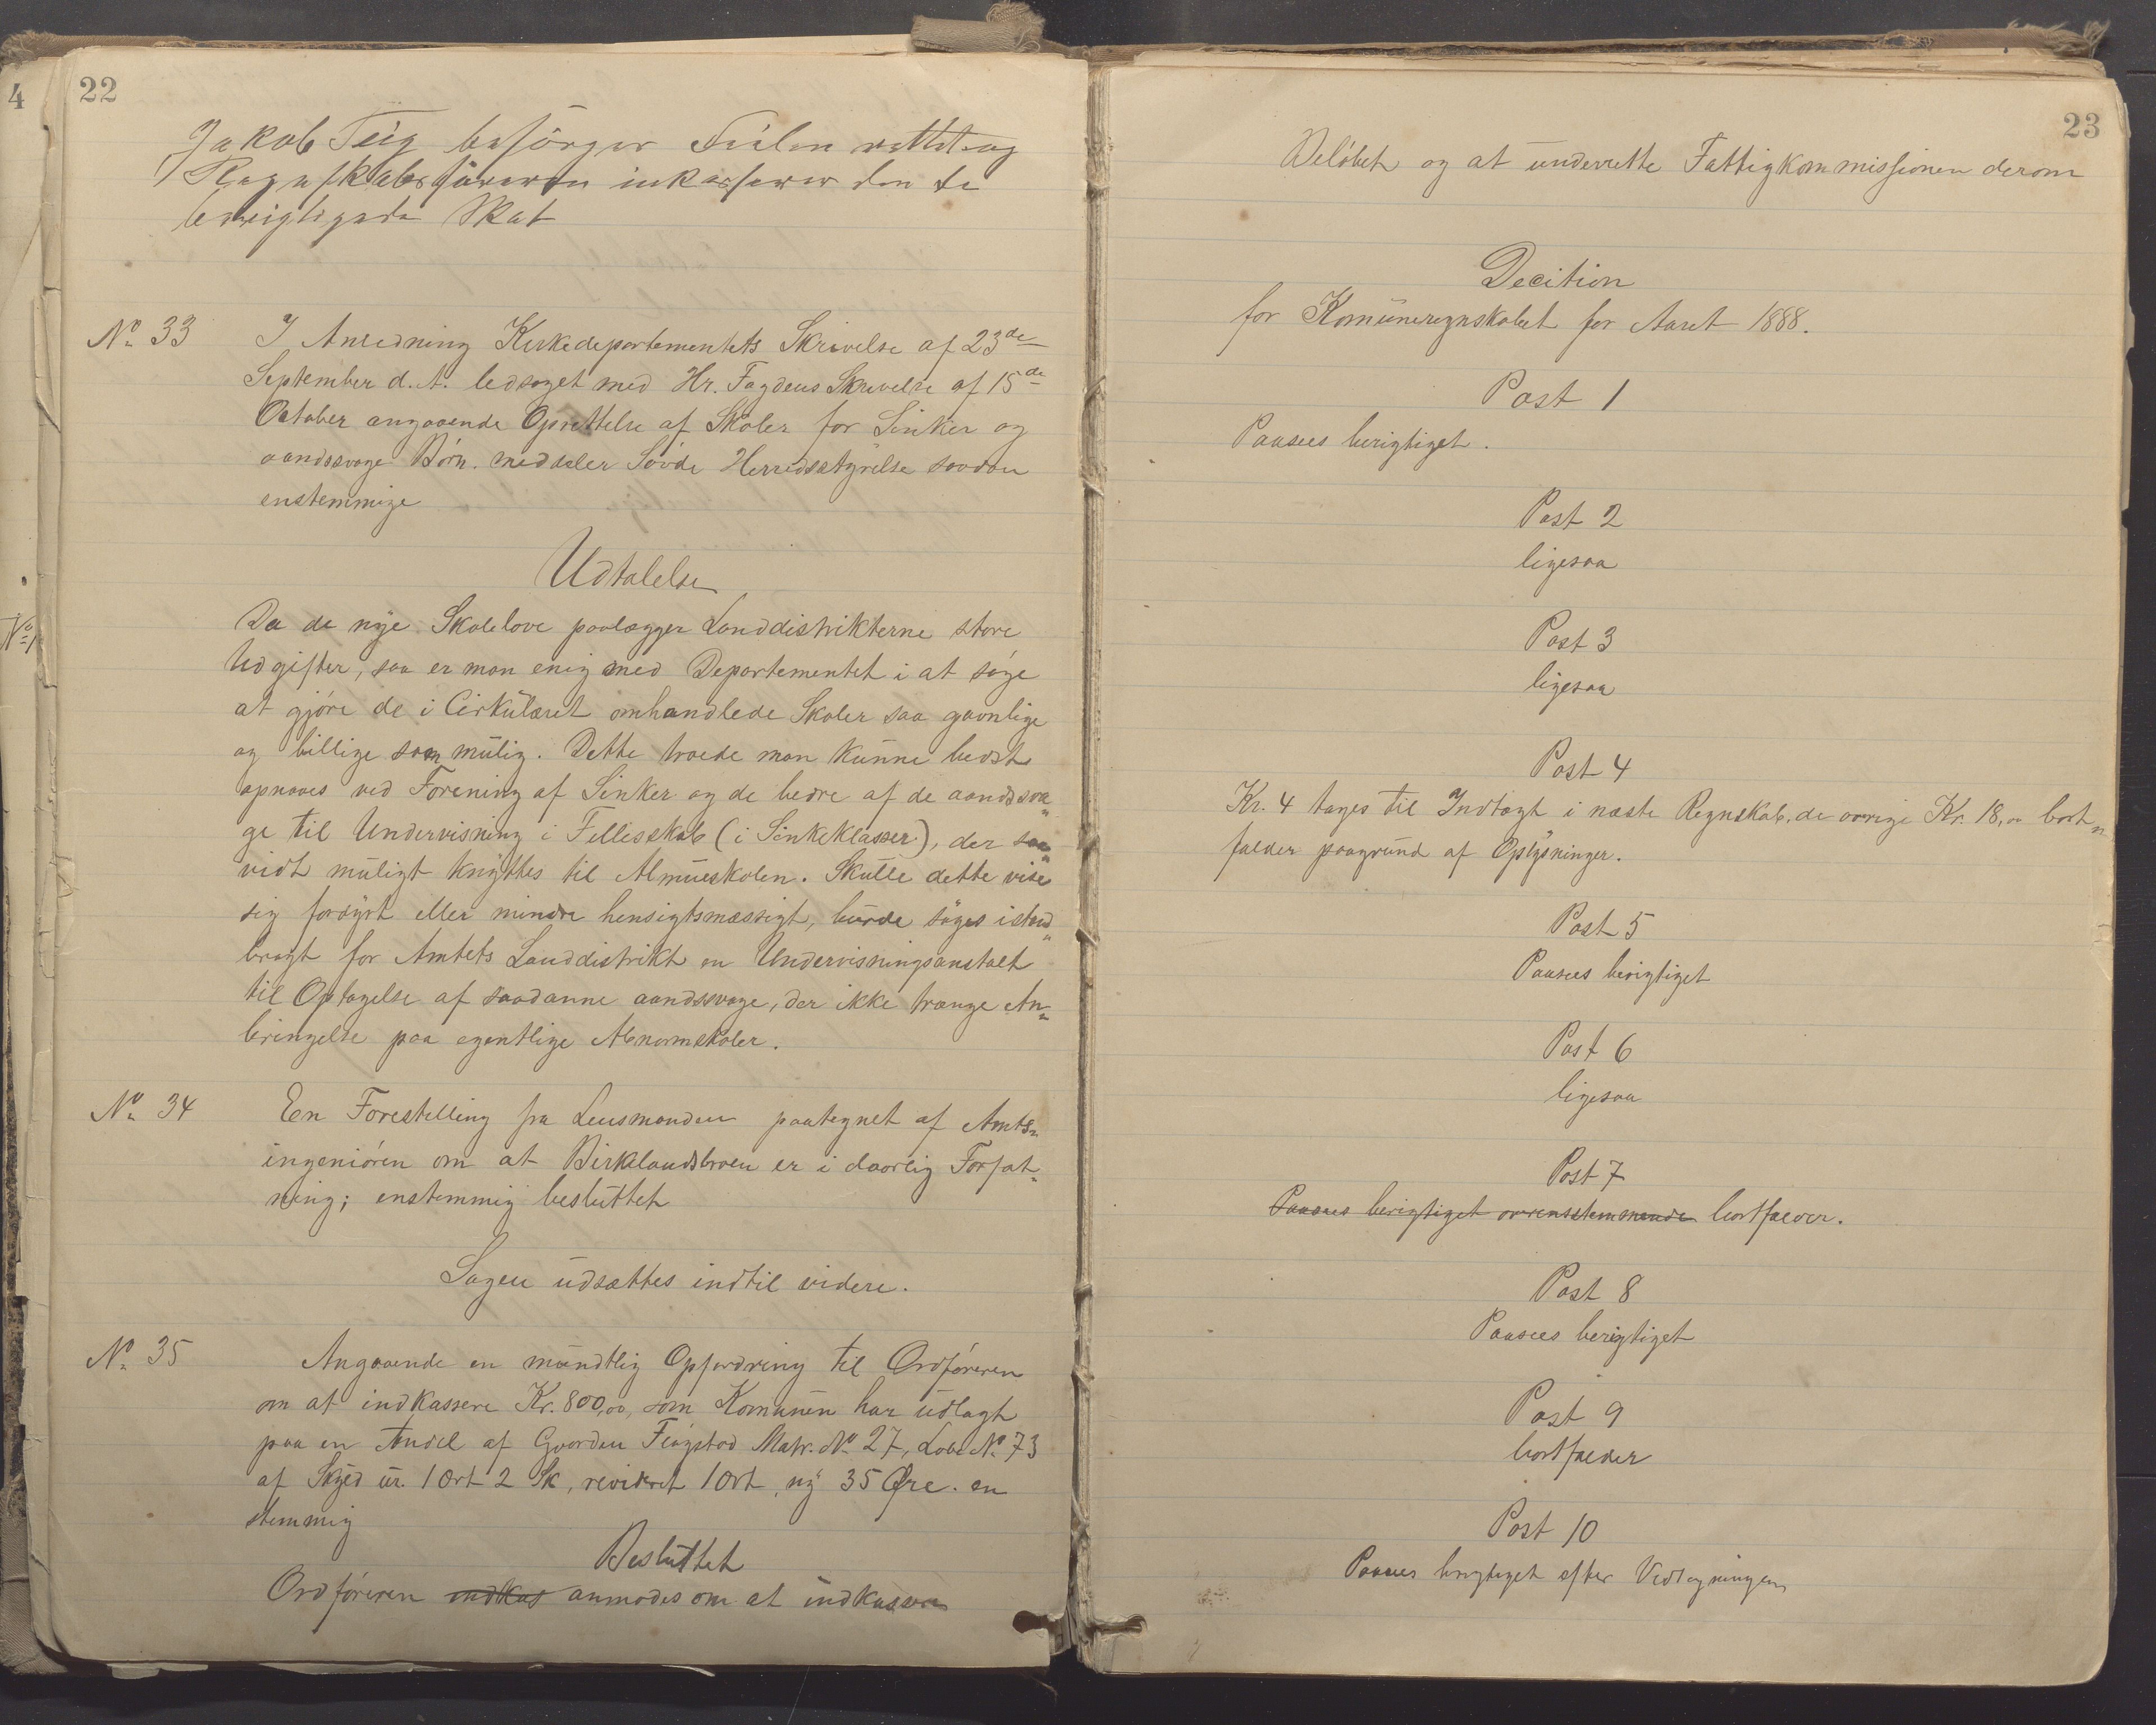 4
22
Jakob Teig besörger Feilen rettet og
Regnskabsföreren inkasserer den be
berigtigede Skat
No 33 I Anledning Kirkedepartementets Skrivelse af 23de
September d.A. ledsaget med Hr. Fogdens Skrivelse af 15de
October angaaende Oprettelse af Skoler for Sinker og
aandssvage Börn. meddeler Sövde Herredsstyrelse saadan
enstemmige
Udtalelse
Da de nye Skolelove paalægger Landdistrikterne store
Udgifter, saa er man enig med Departementet i at söge
at gjöre de i Cirkulæret omhandlede Skoler saa gavnlige
og billige som mulig. Dette troede man kunne bedst
opnaaes ved Forening af Sinker og de bedre af de aandssva„
ge til Undervisning i Fellesskab (i Sinkeklasser), der saa„
vidt muligt knyttes til Almueskolen. Skulle dette vise
sig fordyrt eller mindre hensigtsmæssigt, burde söges istand„
bragt for Amtets Landdistrikt en Undervisningsanstalt
til Optagelse af saadanne aandssvage, der ikke trænge An„
bringelse paa egentlige Abnormskoler.
No 34 En Forestelling fra Lensmanden paategnet af Amts„
ingeniören om at Birklandsbroen er i daarlig Forfat„
ning; enstemmig besluttet
Sagen udsættes indtil videre.
No 35 Angaaende en mundtlig Opfordring til Ordföreren
om at indkassere Kr. 800,00, som Komunen har udlagt
paa en Andel af Gaarden Fiogstad Matr. No 27, Lobe No 73
af Skyld ur. 1 Ort 2 Sk, revideret 1 Ort, ny 35 Øre. en
stemmig
Besluttet
Ordföreren indkas anmodes om at indkassere
23
Belöbet og at underrette Fattigkommissionen derom
Decition
for Komuneregnskabet for Aaret 1888.
Post 1
Paasees berigtiget.
Post 2
ligesaa
Post 3
ligesaa
Post 4
Kr. 4 tages til Indtægt i næste Regnskab, de övrige Kr. 18,00 bort„
falder paagrund af Oplysninger.
Post 5
Paasees berigtiget
Post 6
ligesaa
Post 7
Paasees berigtiget overensstemmende bortfalder.
Post 8
Paasees berigtiget
Post 9
bortfalder
Post 10
Paasees berigtiget efter Vedtegningen